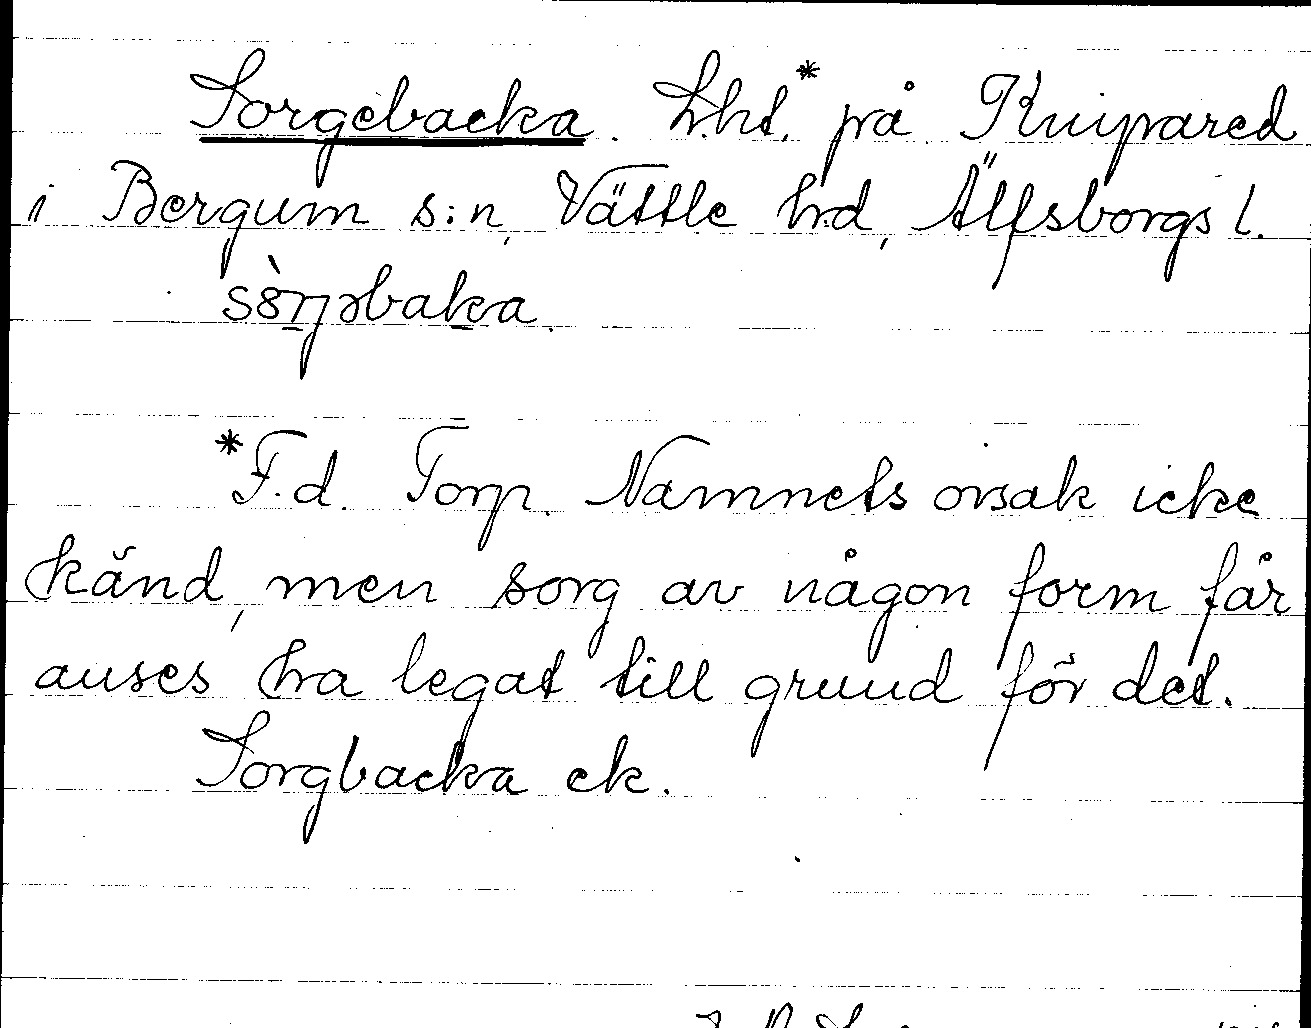 Sorgebacka. Lht.* på Knipared
i Bergum s:n, Vättle hd, Älfsborgs l.
*F.d. Torp. Namnets orsak icke
känd, men sorg av någon form får
anses ha legat till grund för det.
Sorgbacka ek.